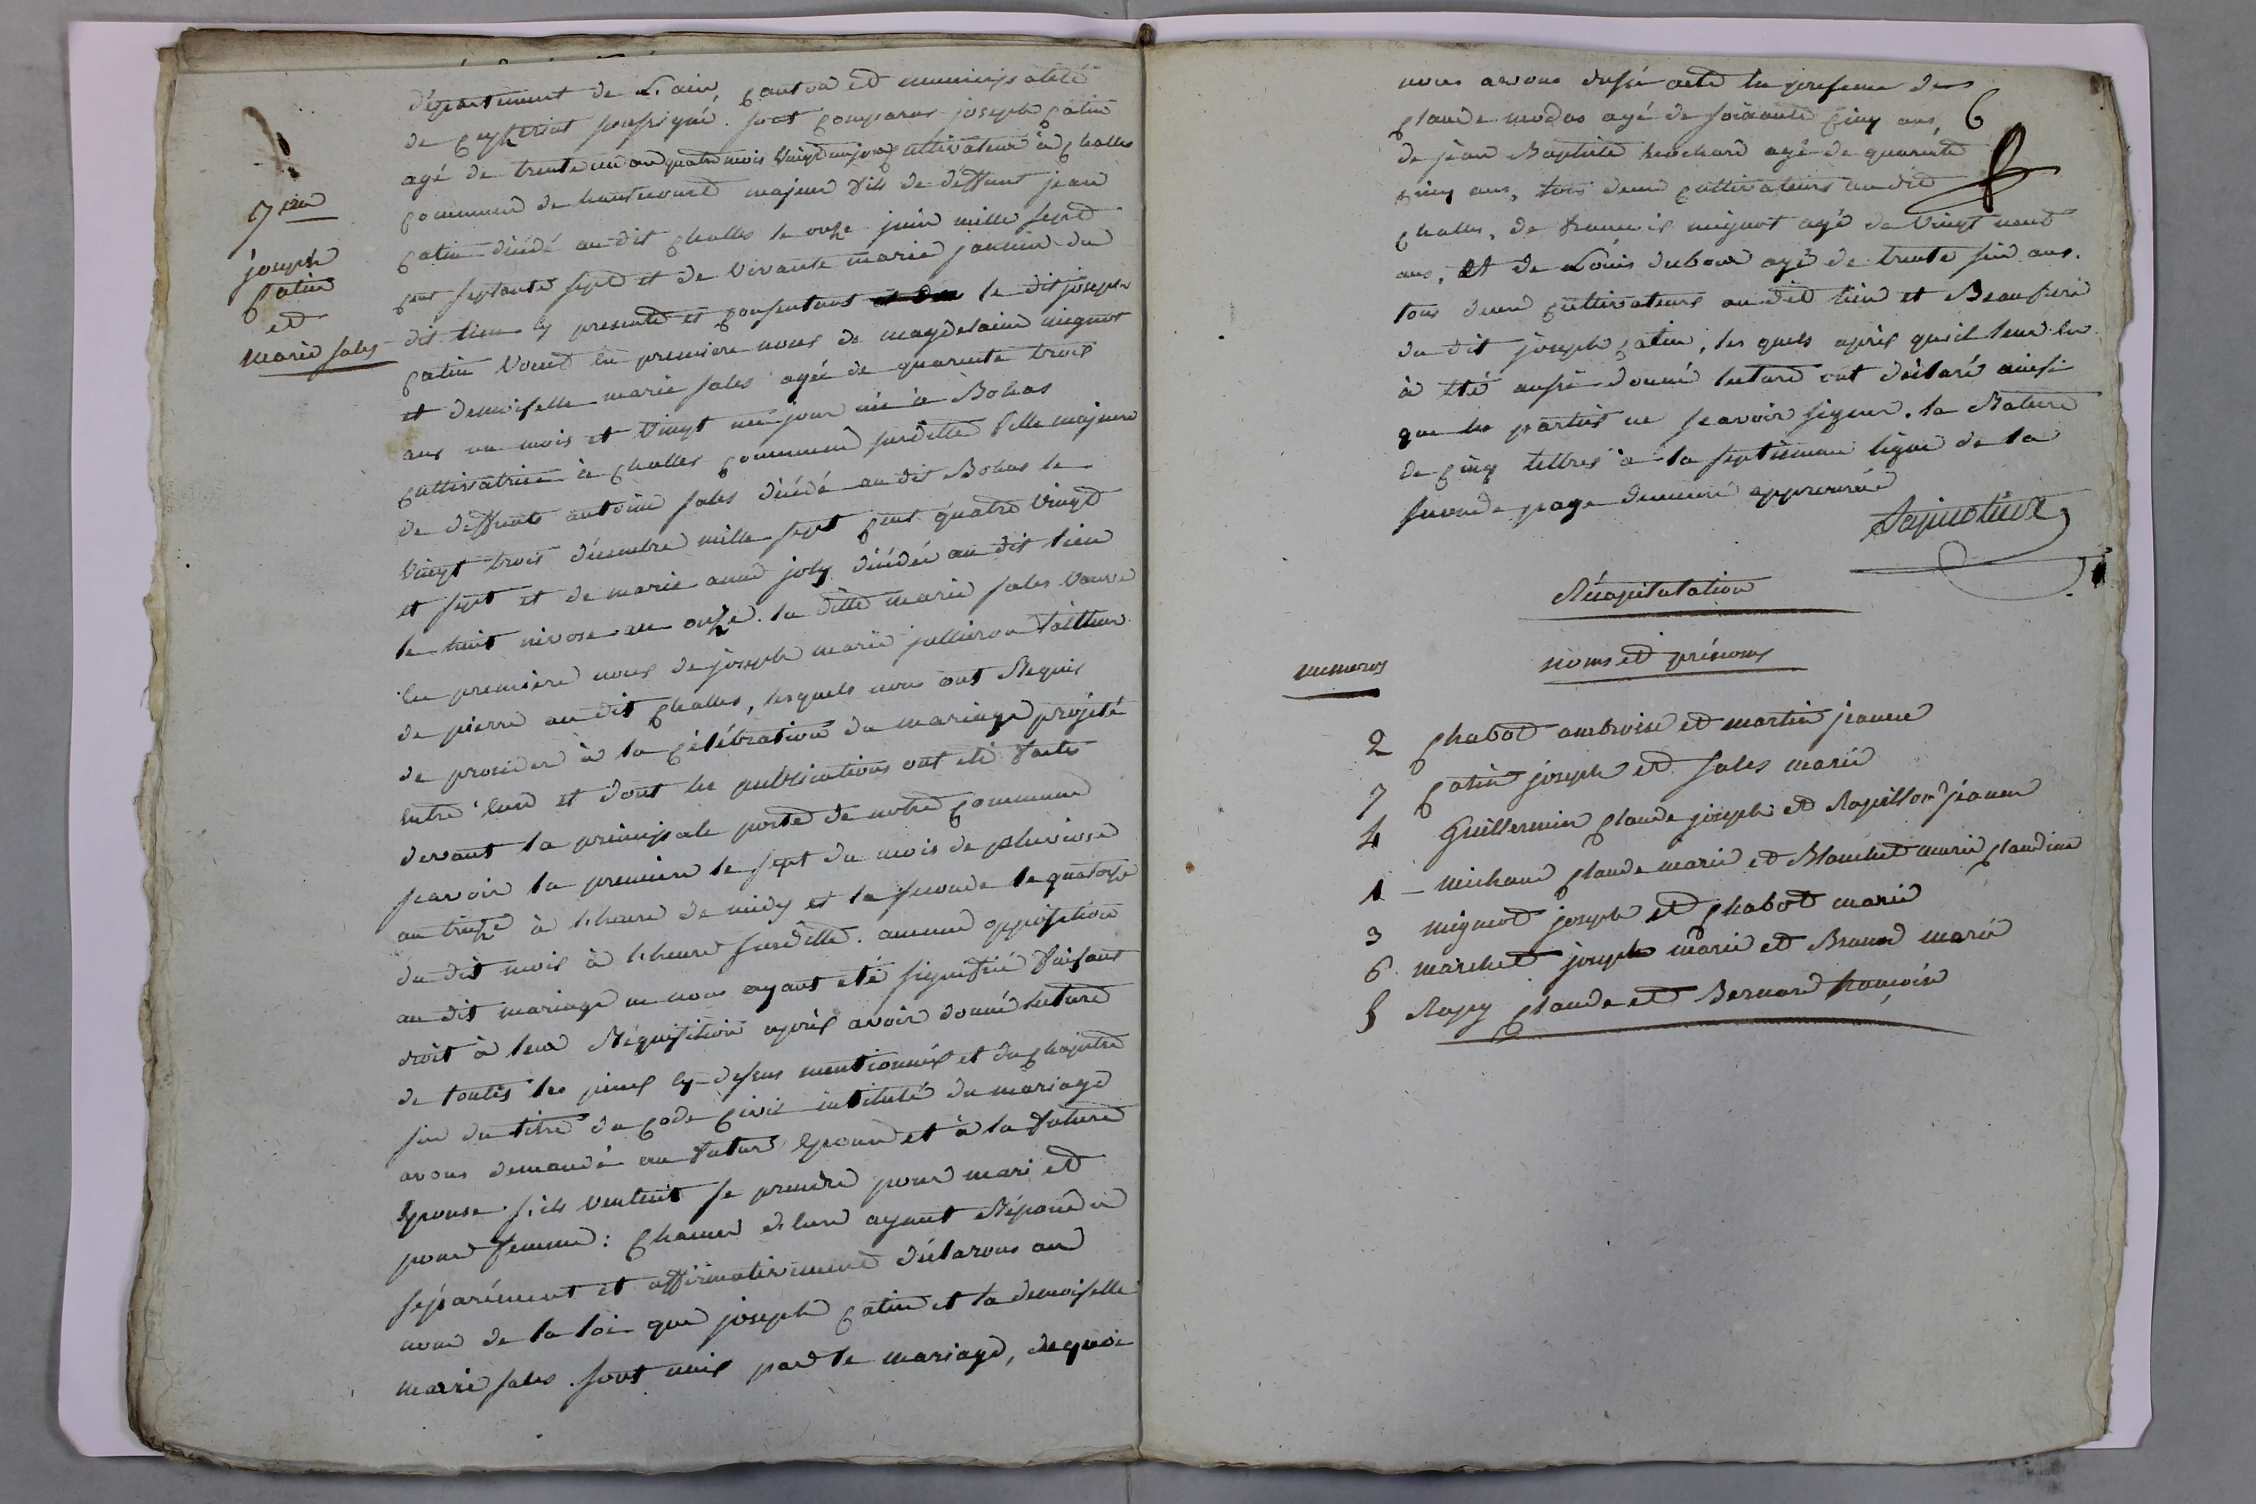 7eme
joseph
Catin
et
Marie Sales
département de L'ain, Canton et municipalité
de Ceyzeriat soussigné. sont Comparus joseph Catin
agé de trente un an quatre mois Vingt un jours Cultivateur à Challes
Commune de hautecourt majeur fils de deffunt jean
Catin décédé au dit Challes le onze juin mille sept
Cent septante sept et de Vivante marie jannin du
dit lieu Cy presente et Consentant le dit joseph
Catin Veuf En premiere noces de magdelaine mignot
et demoiselle marie Sales agée de quarente trois
ans un mois et Vingt un jour née à Bohas
Cultivatrice à Challes Commune susditte fille majeure
de deffunts antoine Sales décédé au dit Bohas le
Vingt trois décembre mille sept Cent quatre Vingt
et sept et de marie anne joly décédée au dit lieu
le huit nivose an onze. la ditte marie Sales Veuve
En premiere noces de joseph marie jullieron tailleur
de pierre au dit Challes, lesquels nous ont Requis
de proceder à la Célébration du mariage projeté
Entre Eux et dont les publications ont été faites
devant la principale porte de notre Commune
scavoir la premiere le sept du mois de pluviose
an treize à L'heure de midy et la seconde le quatorze
du dit mois à L'heure susditte. aucune opposition
au dit mariage ne nous ayant été signifiée faisant
droit à leur Réquisition après avoir donné lecture
de toutes les pieces Cy-dessus mentionnées et du Chapitre
six du titre du Code Civil intitulé du mariage
avons demandé au futur Epoux et à la future
Epouse s'ils veulent se prendre pour mari et
pour femme : Chacun d'Eux ayant Répondu
séparément et affirmativement déclarons au
nom de la loi que joseph Catin et la demoiselle
marie Sales sont unis par le mariage, de quoi
6
nous avons dressé acte En presence de
Claude modas agé de soixante Cinq ans,
de jean Baptiste agé de quarente
Cinq ans, tous deux Cultivateurs au dit
Challes, de francois mignot agé de Vingt neuf
ans, Et de Louis dubour agé de trente six ans.
tous deux Cultivateurs au dit lieu et Beaufrere
du dit joseph Catin, les quels après qu'il leur En
à été aussi donné lecture ont déclaré ainsi
que les parties ne scavoir signer. la Rature
de Cinq lettres à la septieme ligne de la
seconde page demeure approuvée
Récapitulation
numeros
noms et prénoms
2 Chabot ambroise et martin jeanne
7 Catin joseph et Sales marie
4 Guillermin Claude joseph et Rapillon jeanne
1 - michaud Claude marie et Blanchet marie Claudine
3 mignot joseph et Chabot marie
6 marchet joseph marie et Brunet marie
5 Rapy Claude et Bernard francoise